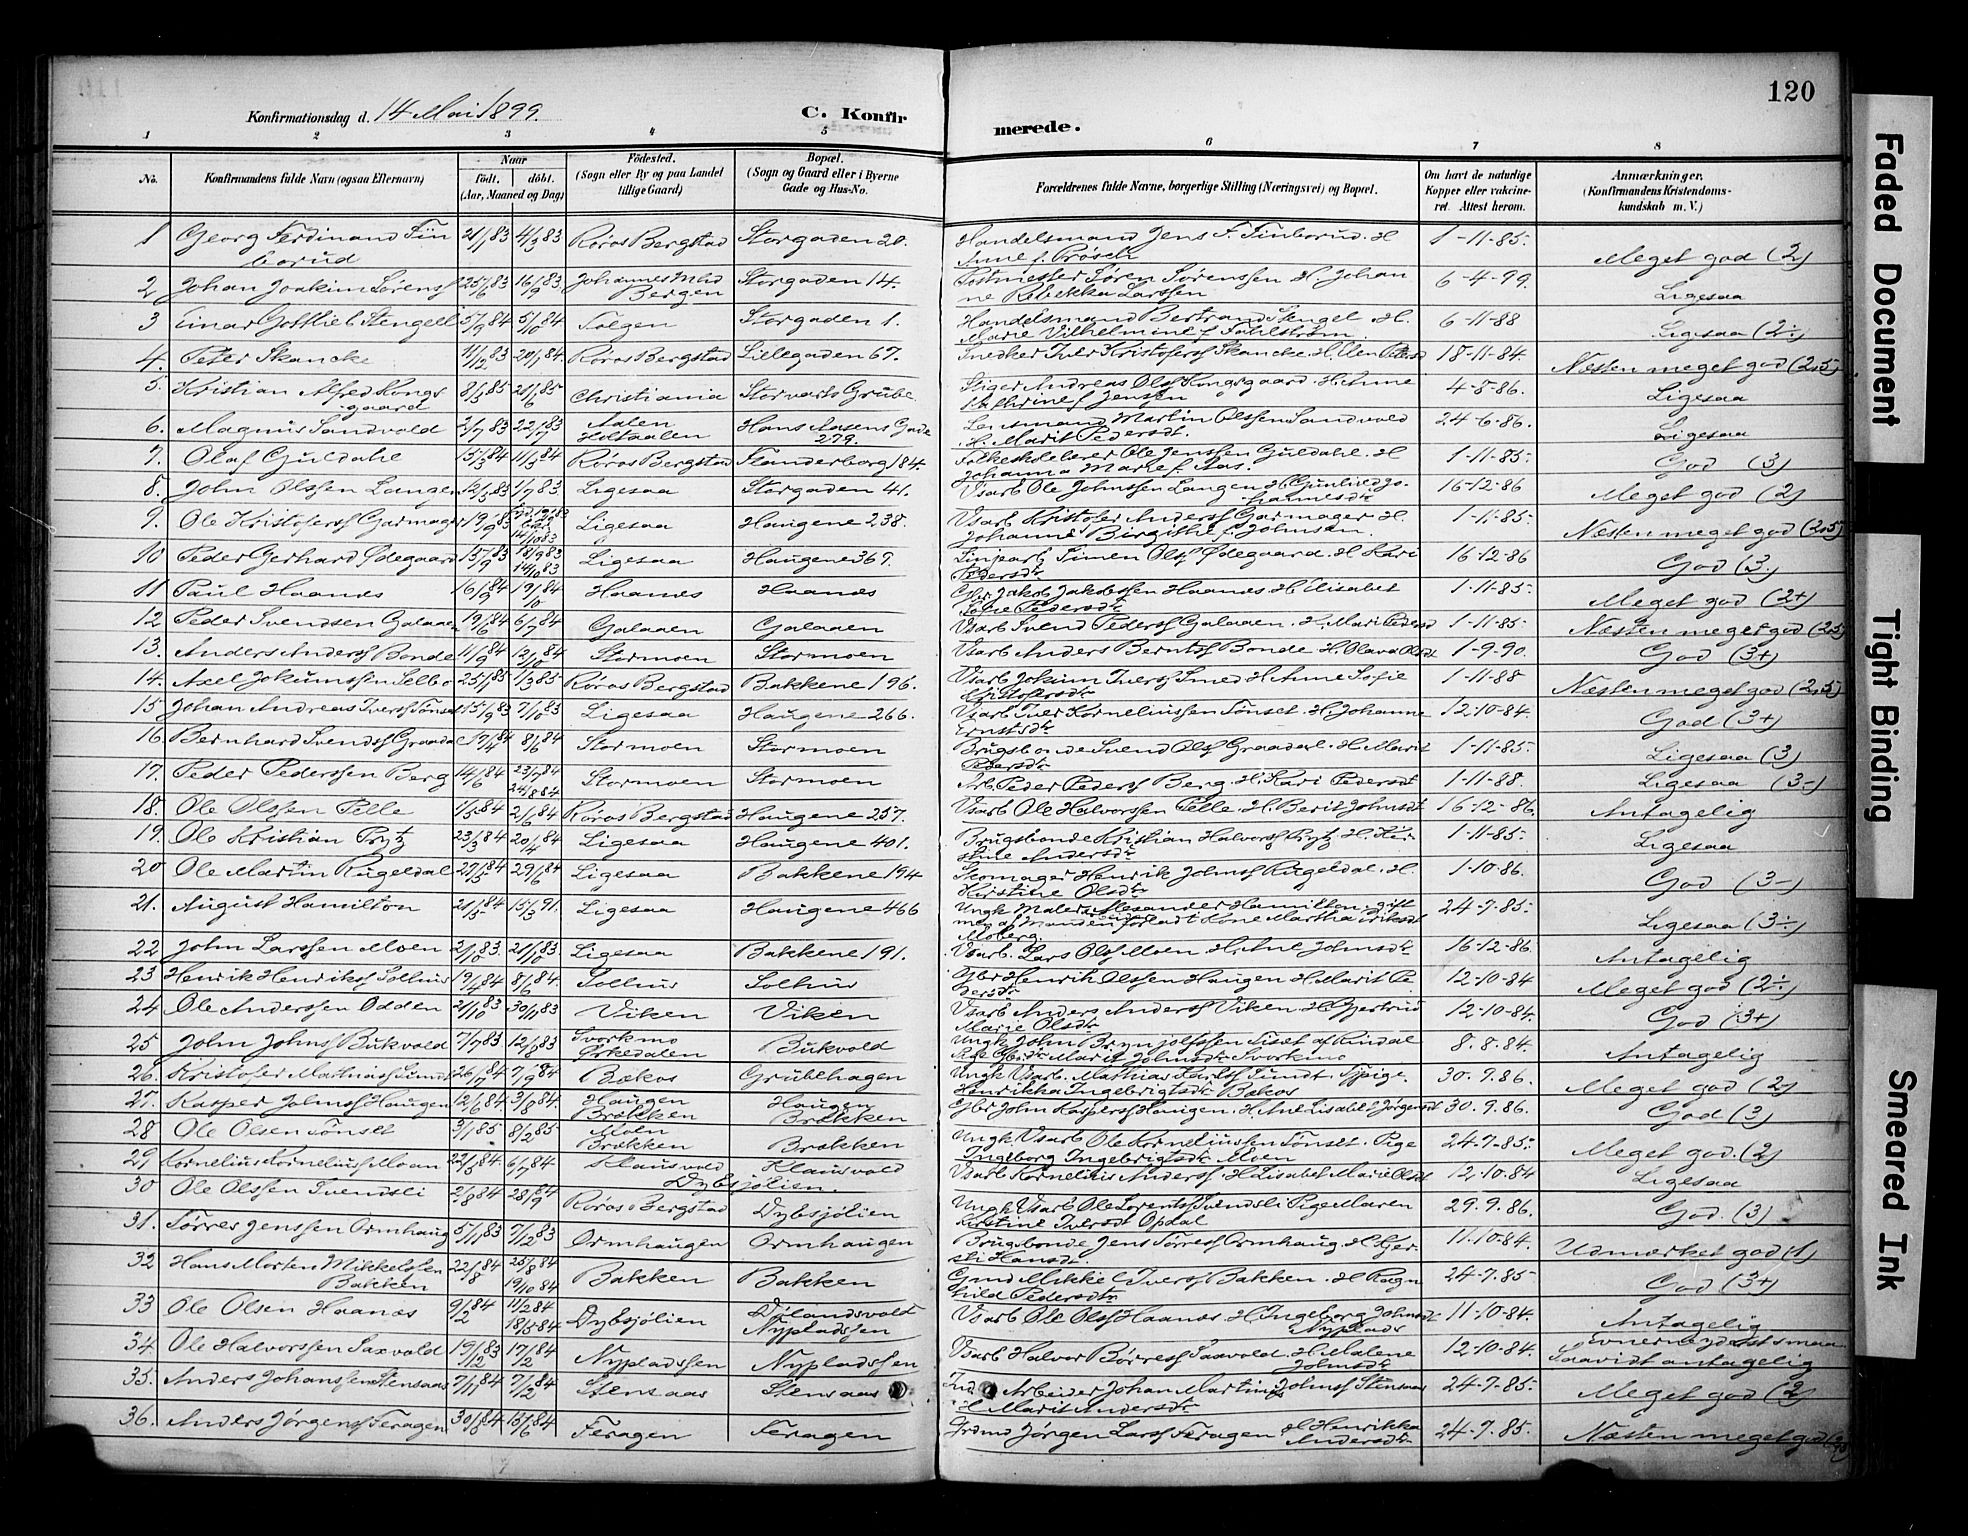 120
Konfirmationsdag d. 14 Mai 1899.
C. Konfirmerede.
1 2 3 4 5 6 7 8
No.
Konfirmandens fulde Navn (ogsaa Efternavn)
Naar
födt. döbt.
(Aar, Maaned og Dag)
Födested.
(Sogn eller By og paa Landet
tillige Gaard)
Bopæl.
(Sogn og Gaard eller i Byerne
Gade og Hus-No.
Forældrenes fulde Navne, borgerlige Stilling (Næringsvei) og Bopæl.
Om havt de naturlige
Kopper eller vakcine-
ret. Attest herom.
Anmærkninger.
(Konfirmandens Kristendoms-
kundskab m. V.)
1 Georg Ferdinand Finborud 21/1 83 4/3 83 Røros Bergstad Storgaden 20. Handelsmand Jens F. Finborud. H Anne f. Prøsch 1-11-85. Meget god (2)
2 Johan Joakim Sørens 25/6 83 16/9 83 Bergen Storgaden 14. Postmester Søren Sørenssen H. Johanne Rebekka Larssen 6-4-99. Ligesaa
3 Einar Gottlieb Stengell 5/9 84 5/10 84 Tolgen Storgaden 1. Handelsmand Bertrand Stengel H. Marie Vilhelmine f. Fahlstrøm 6-11-88 Ligesaa (2÷)
4. Peter Skancke 11/12 83 20/1 84. Røros Bergstad Lillegaden 67. Snedker Iver Kristofers Skancke. H. 18-11-84. Næsten meget god (2,5)
5. Kristian Alfred Kongsgaard 8/1 85 21/6 85 Christiania Storvarts Grube Stiger Andreas Olsf Kongsgaard. H. Anne Kathrine f Jensen 4-8-86. Ligesaa
6. Magnus Sandvold 2/7 83 22/7 83 Aalen Holtaalen Hans Aasens Gade 279. Lensmand Martin Olssen Sandvold H. Marit Pedersdt. 24-6-86. Ligesaa
7. Olaf Guldahl 15/3 83 11/5 83 Røros Bergstad Flanderborg 184 Folkeskolelærer Ole Jenssen Guldahl. H Johanna Marie f. Aas. 1-11-85. God (3)
8. John Olssen Langen 12/5 83 1/7 83. Ligesaa Storgaden 41. Vsarb Ole Johnssen Langen H. Gunhild Johannesdt 16-12-86 Meget god (2)
9. Ole Kristofersf Garmager 19/9 83 14/10 83 Ligesaa Haugene 238. Vsarb Kristofer Andersf Garmager H. Johanne Birgithe f. Johnsen. 1-11-85. Næsten meget god (2,5)
10 Peder Gerhard Ødegaard 15/9 83 18/9 83 14/10 83 Ligesaa Haugene 367. Linjearb Simen Olsf Ødegaard H Kari Pedersdt. 16-12-86 God (3.)
11 Paul Haanes 16/9 84 19/10 84 Haanes Haanes Gbr. Jakob Jakobssen Haanes H. Elisabet Pedersdt 1-11-85. Meget god (2+)
12 Peder Svendsen Galaaen 19/6 84 6/7 84 Galaaen Galaaen Vsarb Svend Pedersf Galaaen. H. Mari Pedersd 1-11-85. Næsten meget god (2,5)
13. Anders Andersf Bonde 11/9 84 12/10 84 Stormoen Stormoen Vsarb Anders Berntsf Bonde H. Olava Olsdt 1-9-90. God (3+)
14. Axel Jokumssen Selbo 25/1 85 1/3 85 Røros Bergstad Bakkene 196. Vsarb Jokum Iversf Smed H. Anne Sofie Kristofersdt. 1-11-88 Næsten meget god (2,5)
15 Johan Andreas Iversf Tønset 15/9 83 7/10 83 Ligesaa Haugene 266. Vsarb Iver Korneliussen Tønset. H. Johanne Ernstsdt. 12-10-84. God (3+)
16. Bernhard Svendsf Graadal 17/4 84 8/6 84 Stormoen Stormoen Brugsbonde Svend Olsf Graadal. H. Marit Pedersdt. 1-11-85. Ligesaa (3)
17. Peder Pederssen Berg 14/6 84 23/7 84 24/8 84 Stormoen Stormoen Arb. Peder Pedersf Berg. H. Kari Pedersdt 1-11-88. Ligesaa (3-)
18. Ole Olssen Pelle 1/5 84 2/6 84 Røros Bergstad Haugene 257. Vsarb Ole Halvorssen Pelle. H. Berit Johnsdt 16-12-86. Antagelig
19. Ole Kristian Prytz 23/3 84 20/4 84 Ligesaa Haugene 401. Brugsbonde Kristian Halvorsf Prytz. H. Kirstine Andersdt. 1-11-85. Ligesaa
20 Ole Martin Rugeldal 27/5 84 29/6 84 Ligesaa Bakkene 194 Skomager Henrik Johnsf Rugeldal. H. Kirstine Olsdt. 1-10-86. God (3-)
21. August Hamilton 21/5 84 15/3 91. Ligesaa Haugene 466 Ungk Maler Alexander Hamilton. gift Kone Martha Eriksdt Moberg 24-7-85. Ligesaa (3÷)
22 John Larssen Moen 2/10 83. 21/10 83 Ligesaa Bakkene 191. Vsarb. Lars Olsf Moen H. Ane Johnsdt 16-12-86 Antagelig
23 Henrik Henriksf Solhus 19/4 84 8/6 84 Solhus Solhus Gbr Henrik Olssen Haugen H. Marit Pedersdt. 12-10-84 Meget god (2÷)
24 Ole Anderssen Odden 21/10 83. 30/11 83 Viken Viken Vsarb Anders Andersf Viken. H. Gjertrud Marie Olsdt. 12-10-84. God (3+)
25 John Johnsf Bukvold 7/7 83 12/8 83 Svorkmo Orkedalen Bukvold Ungk John Brynjolfssen Siset af Rindal Marit Johnsdt. Svorkmo 8.-8-84. Antagelig
26. Kristofer Mathiasf Sundt 26/7 84 7/9 84 Bækos Grubehagen Ungk. Vsarb. Mathias Sundt. Pige. Henrikka Ingebrigtsdt. Bækos 30.-9.86. Meget god (2)
27. Kasper Johnsf Haugen 12/6 84. 3/8 84. Haugen Brækken Haugen Brækken Gbr John Kaspersf Haugen. H. Ane Lisabet Jørgensdt 30.9.86. God (3)
28 Ole Olsen Tønset 3/1 85 8/2 85 Moen Brækken Brækken Ungk. Vsarb Ole Korneliussen Tønset. Pige Ingeborg Ingebrigtsdt. Moen 24-7-85. Meget god. (2)
29 Kornelius Korneliusf Moan 22/5 84 6/7 84 Klausvold Klausvold Vsarb Kornelius Andersf H. Lisabet Marie Olsdt 12-10-84 Ligesaa
30 Ole Olssen Svendsli 2/8 84 28/9 84 Dybsjølien. Røros Bergstad Dybsjølien Ungk Vsarb Ole Lorentsf Svendsli Pige Maren Kirstine Iversdt Opdal 29.9.86. God. (3)
31. Tørres Jenssen Ormhaug 5/11 83 7/12 83 Ormhaugen Ormhaugen Brugsbonde Jens Tørresf Ormhaug. H Gjersti Hansdt. 11-10-84. Udmærket god (1)
32 Hans Morten Mikkelsen Bakken 22/8 84 25/8 84 19/10 84 Bakken Bakken Gmd Mikkel Iversf Bakken. H Ragnhild Pedersdt. 24-7-85 God (3+)
33 Ole Olsen Haanæs 9/2 84 11/2 84 18/5 84 Dybsjølien Nypladssen Vsarb Ole Olsf Haanæs H. Ingeborg Johnsdt. Nyplads 11-10-84. Antagelig
34 Ole Halvorssen Saxvold 19/12 83 17/2 84 Nypladssen Nypladssen Vsarb Halvor Børresf Saxvold. H. Malene Johnsdt. 12-10-84. evner yderst smaa Saavidt antagelig
35. Anders Johanssen Stensaas 7/1 84 7/2 84 Stensaas Stensaas Ind Arbeider Johan Martinus Johnsf Stensaas H. Marit Andersdt. 24-7-85. Meget god (2)
36. Anders Jørgensf Feragen 30/8 84 15/6 84 Feragen Feragen Grdmd Jørgen Larsf Feragen H Henrikka Andersdt. 24-7-85. Næsten meget god
Faded Document
Tight Binding
Smeared Ink